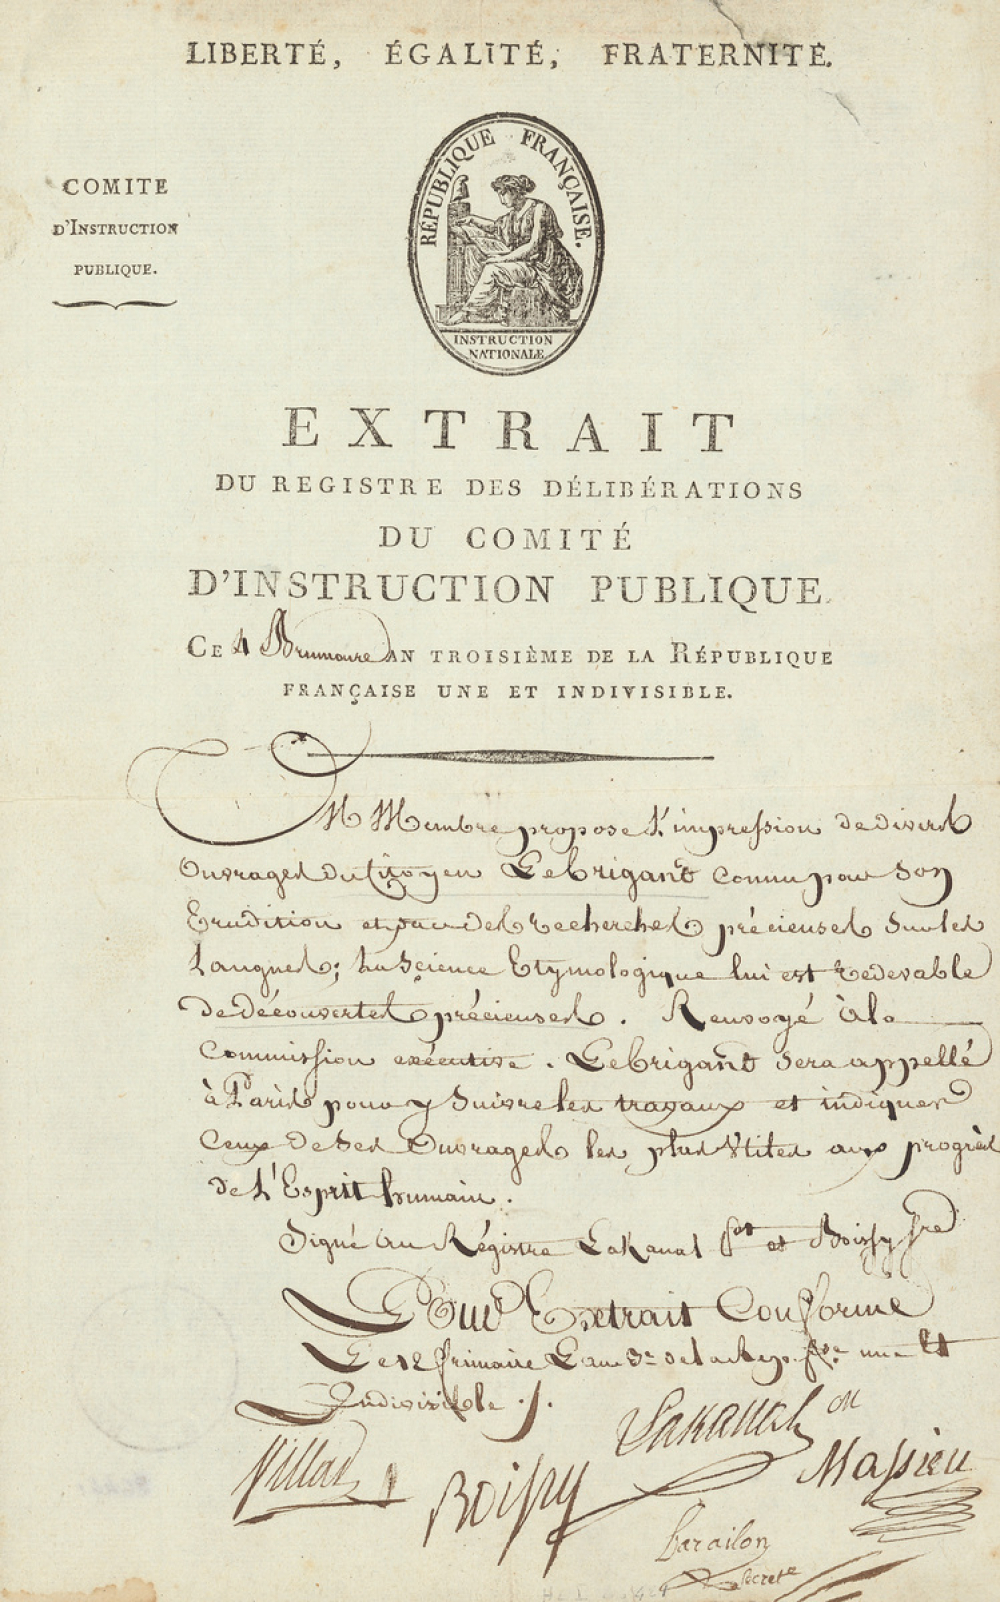 LIBERTÉ, ÉGALITÉ, FRATERNITÉ.
COMITÉ
D'INSTRUCTION
PUBLIQUE.
RÉPUBLIQUE FRANÇAISE.
INSTRUCTION
NATIONALE
EXTRAIT
DU REGISTRE DES DÉLIBÉRATIONS
DU COMITÉ
D'INSTRUCTION PUBLIQUE.
CE 4 Brumaire AN TROISIÈME DE LA RÉPUBLIQUE
FRANÇAISE UNE ET INDIVISIBLE.
Un Membre propose l'impression de divers
Ouvrages du Citoyen Lebrigant connu par son
Erudition et par des recherches précieuses sur les
Langues; la Science Etymologique lui est redevable
de découvertes précieuses. Renvoyé à la
Commission exécutive. Lebrigant sera appellé
à Paris pour y suivre les travaux et indiquer
Ceux de ses Ouvrages les plus Utiles aux progrès
de l'Esprit humain.
Signé au Régistre Lakanal et Boissy
Pour Extrait Conforme
Le 12 frimaire L'an 3e de la Rep. une et
Indivisible ./.
Villar Boissy Lakanal Massieu
Barailon
Secrete